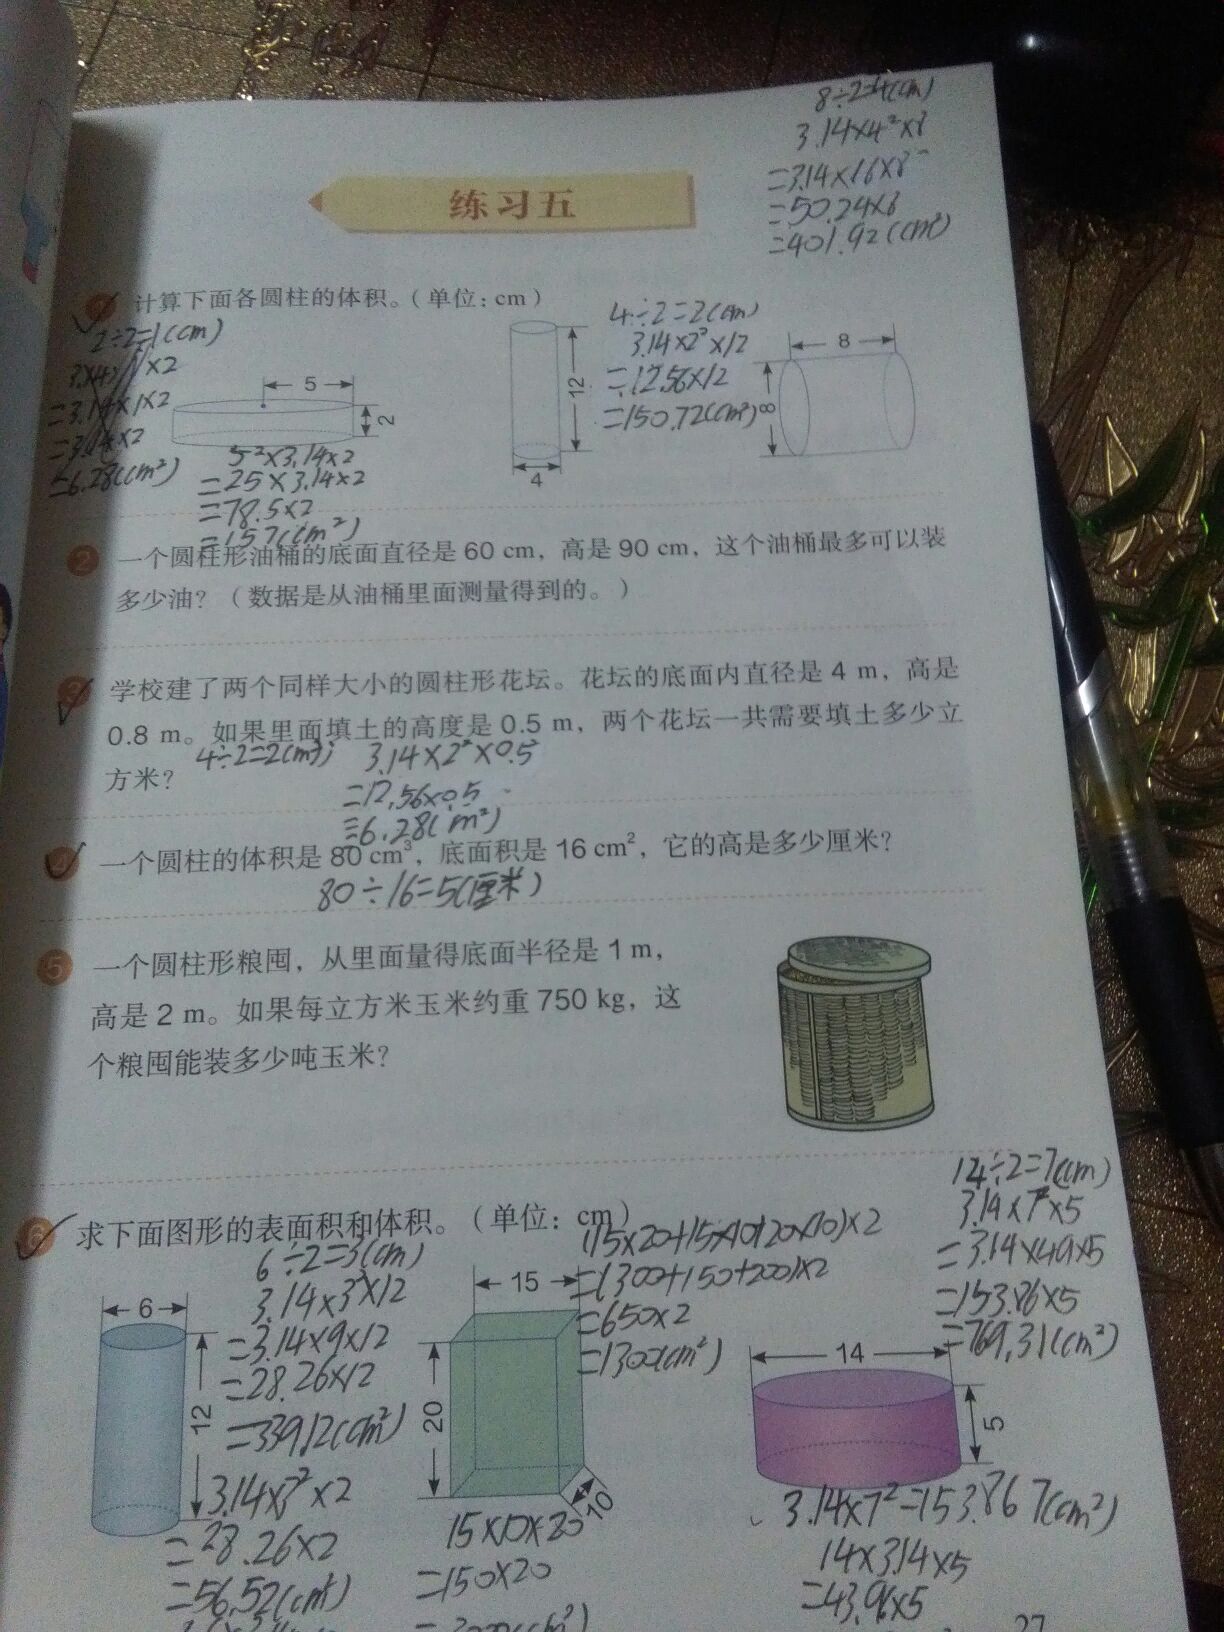 8÷2=4(cm)
3.14×4²×8
=3.14×16×8
=50.24×8
=401.92(cm²)
练习五
计算下面各圆柱的体积。（单位：cm）
2÷2=1(cm)
=3.14×1×2
=6.28(cm²)
5
2
5²×3.14×2
=25×3.14×2
=78.5×2
=157(cm²)
12
4
4÷2=2(cm)
3.14×2²×12
=12.56×12
=150.72(cm²)
8
8
2 一个圆柱形油桶的底面直径是 60 cm，高是 90 cm，这个油桶最多可以装
多少油？（数据是从油桶里面测量得到的。）
3 学校建了两个同样大小的圆柱形花坛。花坛的底面内直径是 4 m，高是
0.8 m。如果里面填土的高度是 0.5 m，两个花坛一共需要填土多少立
方米？
4÷2=2(m²)
3.14×2²×0.5
=12.56×0.5
=6.28(m²)
4 一个圆柱的体积是 80 cm³，底面积是 16 cm²，它的高是多少厘米？
80÷16=5(厘米)
5 一个圆柱形粮囤，从里面量得底面半径是 1 m，
高是 2 m。如果每立方米玉米约重 750 kg，这
个粮囤能装多少吨玉米？
6 求下面图形的表面积和体积。（单位：cm）
6÷2=3(cm)
3.14×3²×12
=3.14×9×12
=28.26×12
=339.12(cm²)
3.14×3²×2
=28.26×2
=56.52(cm²)
6
12
(15×20+15×10+20×10)×2
=(300+150+200)×2
=650×2
=1300(cm²)
15
20
10
15×10×20
=150×20
14÷2=7(cm)
3.14×7²×5
=3.14×49×5
=153.86×5
=769.31(cm²)
14
5
3.14×7²=153.867(cm²)
14×3.14×5
=43.96×5
27